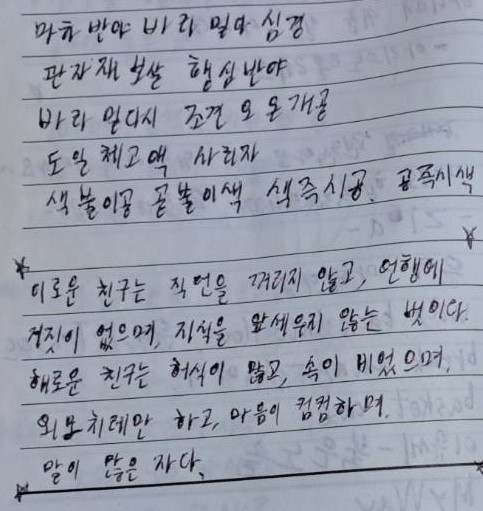 마하 반야 바라 밀다 심경
관자재 보살 행심 반야
바라 밀다시 조견 오온개공
도일체고액 사리자
색불이공 공불이색 색즉시공. 공즉시색
이로운 친구는 직언을 꺼리지 않고, 언행에
거짓이 없으며, 지식을 앞세우지 않는 벗이다.
해로운 친구는 허식이 많고, 속이 비었으며,
외모치레만 하고, 마음이 컴컴하며,
말이 많은 자다.